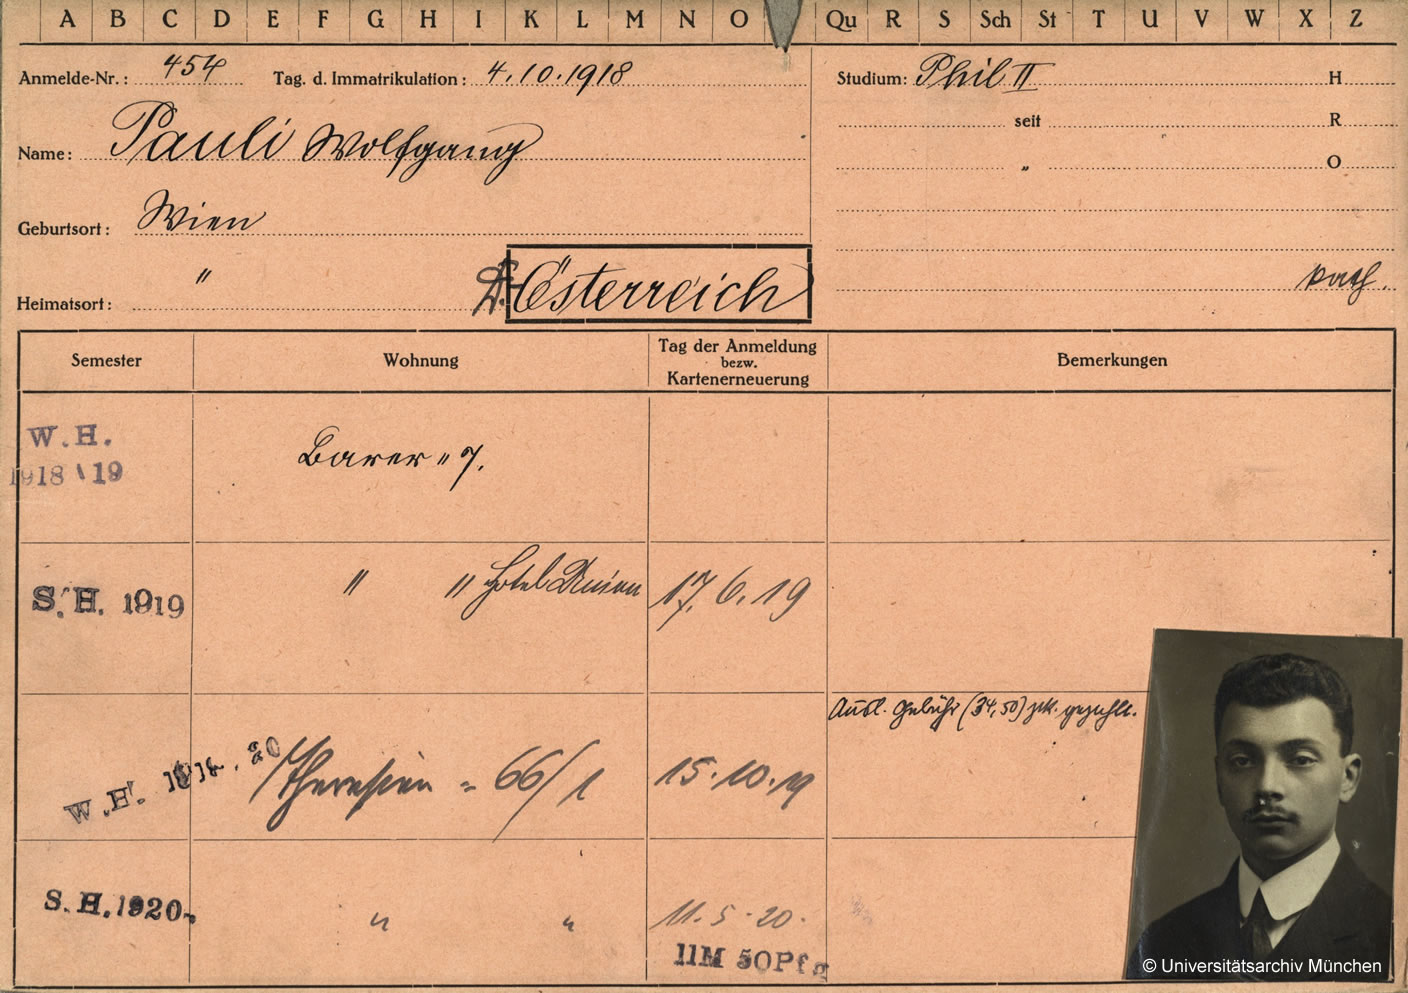 A B C D E F G H I K L M N O Qu R S Sch St T U V W X Z
Anmelde-Nr.: 454 Tag. d. Immatrikulation: 4.10.1918
Studium: Phil II H
seit R
„ O
Name: Pauli Wolfgang
Geburtsort: Wien
Heimatsort: " Österreich
kath.
Semester Wohnung Tag der Anmeldung bezw. Kartenerneuerung Bemerkungen
W.H. 1918/19 Barer " 7.
S.H. 1919 " " Hotel Union 17.6.19
W.H. 1919.20 Theresien = 66/1 15.10.19 Ausl. Gebühr (34,50) gezahlt.
S.H. 1920 " " 11.5.20.
11M 50Pfg
© Universitätsarchiv München